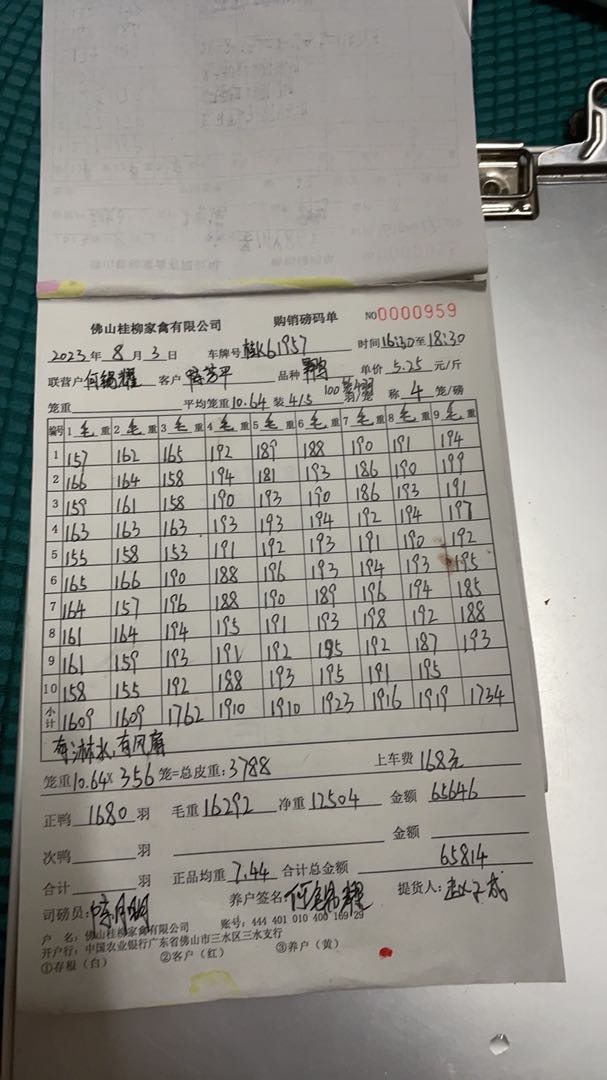 佛山桂柳家禽有限公司 购销磅码单 NO0000959
2023年 8月 3日 车牌号 桂K61957 时间16:30至18:30
联营户 何锦耀 客户 芳平 品种 鸭 单价 5.25 元/斤
笼重 平均笼重10.64 装4/5 100笼 称 4 笼/磅
编号 1毛重 2毛重 3毛重 4毛重 5毛重 6毛重 7毛重 8毛重 9毛重
1 157 162 165 192 189 188 190 191 194
2 166 164 158 194 181 193 186 190 199
3 159 161 158 190 193 190 186 193 191
4 163 163 163 193 193 194 192 194 197
5 155 158 153 191 192 193 191 190 192
6 165 166 190 188 196 193 194 193 195
7 164 157 196 188 190 189 196 194 185
8 161 164 194 195 191 193 198 192 188
9 161 159 193 191 192 195 192 187 193
10 158 155 192 188 193 195 191 195
小计 1609 1609 1762 1910 1910 1923 1916 1919 1734
有淋水,有风扇
笼重10.64×356笼=总皮重:3788 上车费 168元
正鸭 1680 羽 毛重 16292 净重 12504 金额 65646
次鸭 羽 金额
合计 羽 正品均重 7.44 合计总金额 65814
司磅员: 养户签名:何锦耀 提货人:
户 名:佛山桂柳家禽有限公司 账号:444 401 010 400 169 29
开户行:中国农业银行广东省佛山市三水区三水支行
①存根(白) ②客户(红) ③养户(黄)